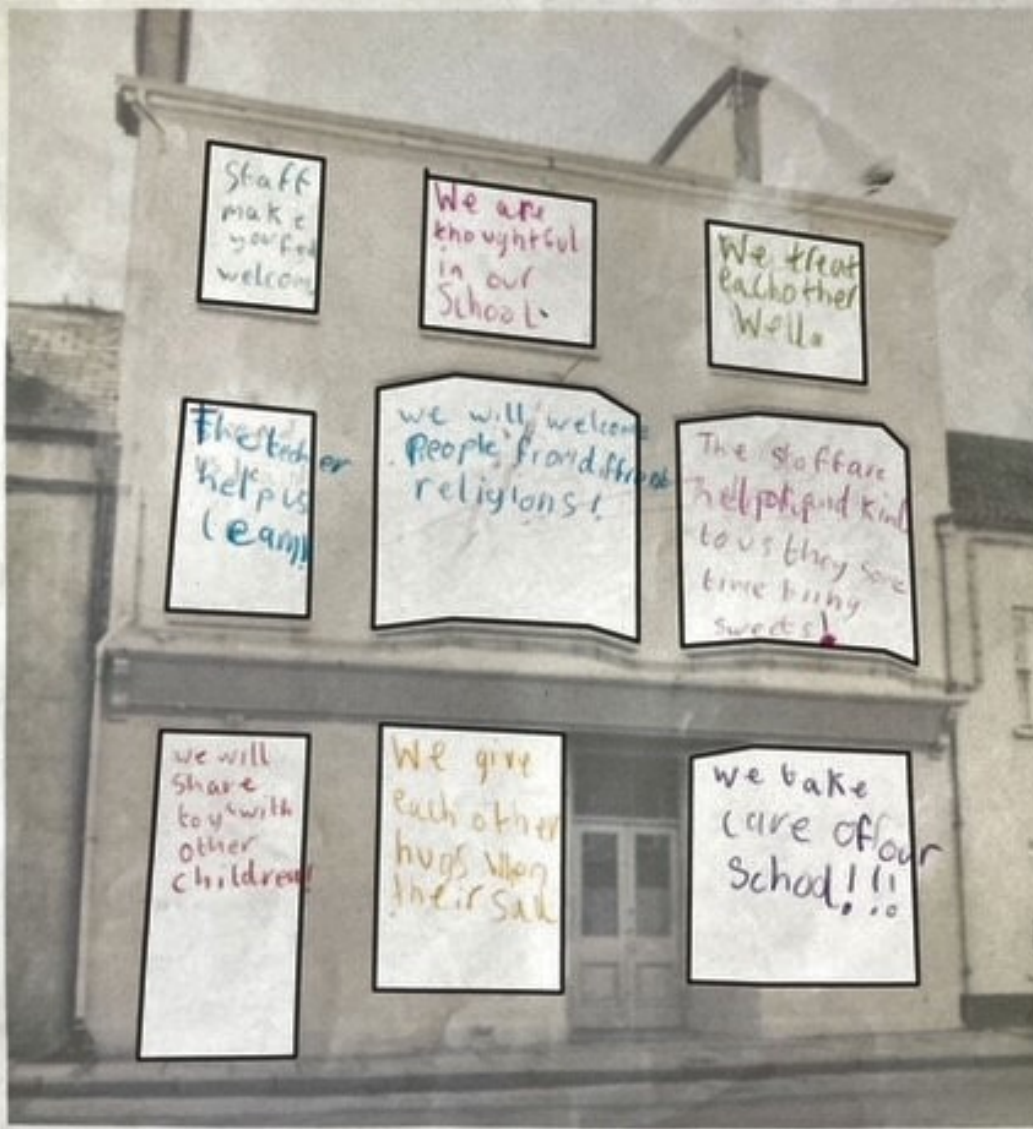 Staff
make
you feel
welcom
We are
thoughtful
in our
School.
We treat
eachother
Well.
The teacher
help us
learn!
we will welcome
People from diffrent
religions!
The staff are
helpful and kind
to us they some
time bring
sweets!
we will
share
toys with
other
children!
We give
each other
hugs when
their sad
we take
care of our
School!!!